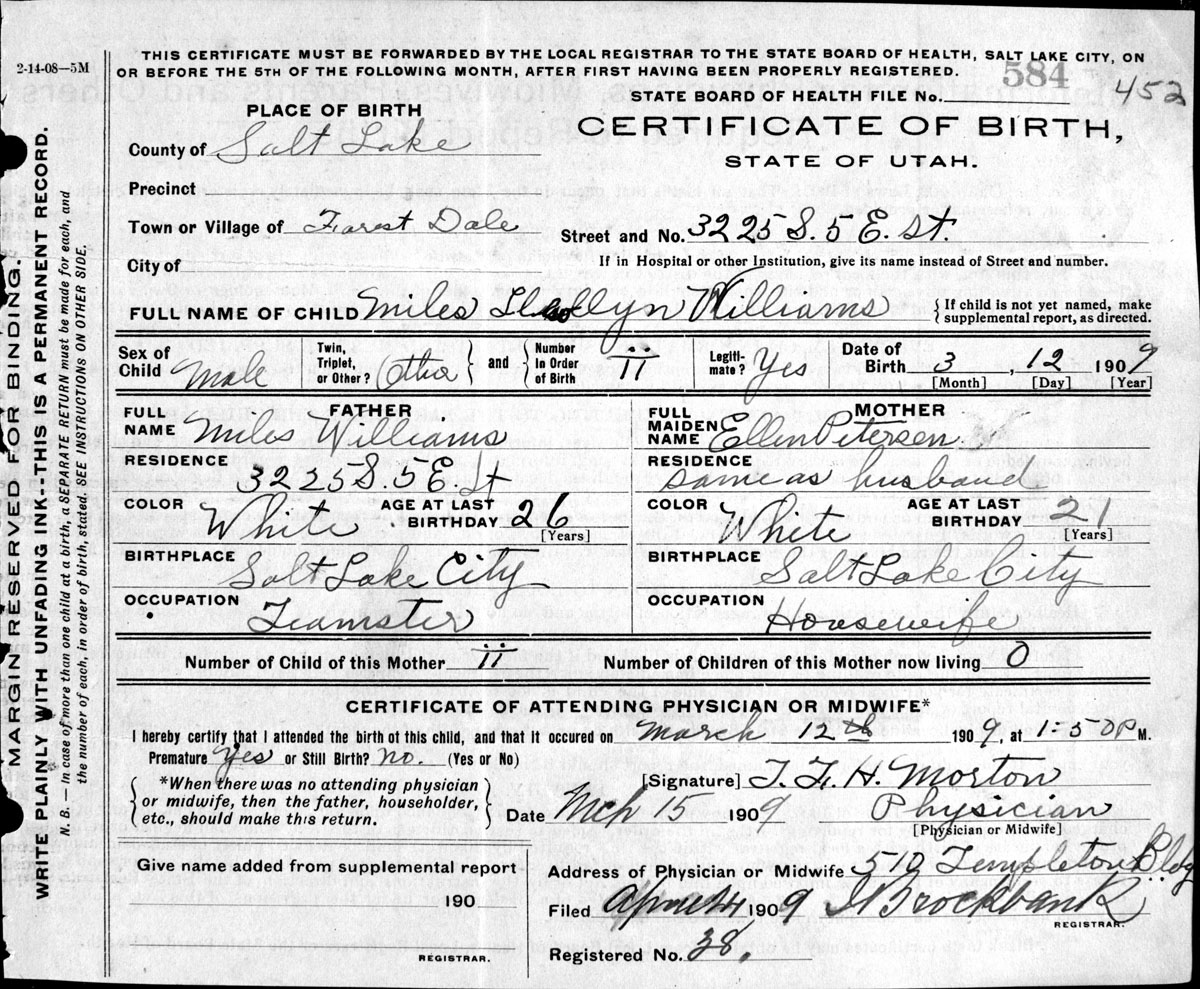 THIS CERTIFICATE MUST BE FORWARDED BY THE LOCAL REGISTRAR TO THE STATE BOARD OF HEALTH, SALT LAKE CITY, ON
OR BEFORE THE 5TH OF THE FOLLOWING MONTH, AFTER FIRST HAVING BEEN PROPERLY REGISTERED.
2-14-08—5M
584
452
STATE BOARD OF HEALTH FILE No.
PLACE OF BIRTH
CERTIFICATE OF BIRTH,
STATE OF UTAH.
County of Salt Lake
Precinct
Town or Village of Forest Dale
Street and No. 3225 S. 5 E. St.
City of
If in Hospital or other Institution, give its name instead of Street and number.
FULL NAME OF CHILD Miles Williams
{If child is not yet named, make supplemental report, as directed.
Sex of Child Male
Twin, Triplet, or Other? Other
and Number in Order of Birth ii
Legitimate? Yes
Date of Birth 3, 12 1909
[Month] [Day] [Year]
FATHER
FULL NAME Miles Williams
RESIDENCE 3225 S. 5 E. St
COLOR White AGE AT LAST BIRTHDAY 26
[Years]
BIRTHPLACE Salt Lake City
OCCUPATION Teamster
MOTHER
FULL MAIDEN NAME Ellen Petersen
RESIDENCE same as husband
COLOR White AGE AT LAST BIRTHDAY 21
[Years]
BIRTHPLACE Salt Lake City
OCCUPATION Housewife
Number of Child of this Mother ii Number of Children of this Mother now living 0
CERTIFICATE OF ATTENDING PHYSICIAN OR MIDWIFE*
I hereby certify that I attended the birth of this child, and that it occured on March 12th 1909, at 1-50 P M.
Premature Yes or Still Birth? no. (Yes or No)
*When there was no attending physician
or midwife, then the father, householder,
etc., should make this return.
[Signature] T. F. H. Morton
Date Mch 15 1909 Physician
[Physician or Midwife]
Give name added from supplemental report
190
REGISTRAR.
Address of Physician or Midwife 510 Templeton Bldg
Filed April 1909 Brockbank
REGISTRAR.
Registered No. 38.
MARGIN RESERVED FOR BINDING.
WRITE PLAINLY WITH UNFADING INK--THIS IS A PERMANENT RECORD.
N. B. — In case of more than one child at a birth, a SEPARATE RETURN must be made for each, and
the number of each, in order of birth, stated. SEE INSTRUCTIONS ON OTHER SIDE.